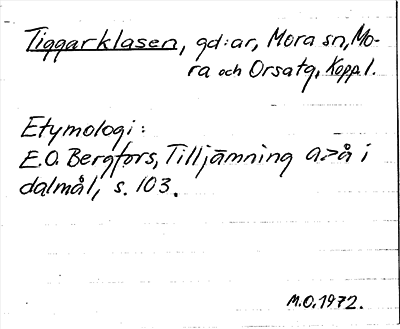 Tiggarklasen, gd:ar, Mora sn, Mo-
ra och Orsatg, Kopp.l.
Etymologi:
E.O. Bergfors, Tilljämning a>å i
dalmål, s. 103.
M.O. 1972.